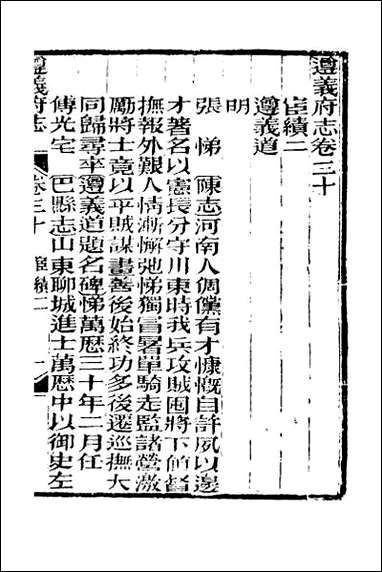 遵義府志卷三十
宦績二
遵義道
明
張悌 陳志河南人倜儻有才慷慨自許夙以邊
才著名以憲長分守川東時我兵攻賊囤將下前督
撫報外艱人情漸懈弛悌獨冒暑單騎走監諸營激
勵將士竟以平賊謀畫善後始終功多後遷巡撫大
同歸尋卒遵義道題名碑悌萬歷三十年二月任
傅光宅 巴縣志山東聊城進士萬歷中以御史左
遵義府志 卷三十 宦績二 一